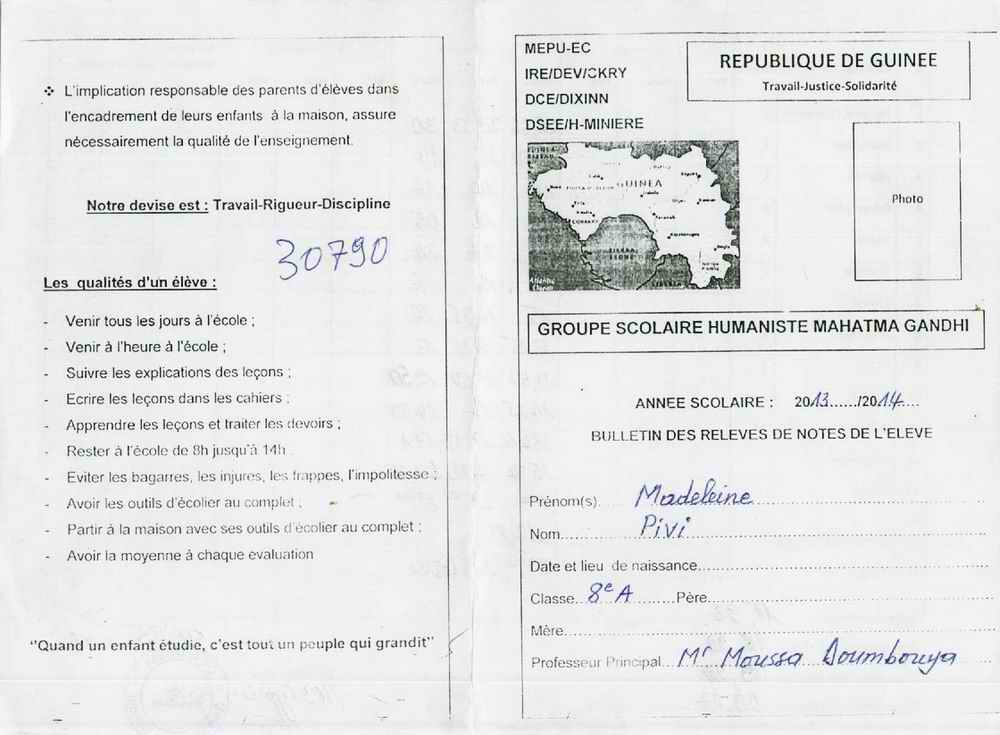 ❖ L'implication responsable des parents d'élèves dans
l'encadrement de leurs enfants à la maison, assure
nécessairement la qualité de l'enseignement.
Notre devise est : Travail-Rigueur-Discipline
30790
Les qualités d'un élève :
- Venir tous les jours à l'école ;
- Venir à l'heure à l'école ;
- Suivre les explications des leçons ;
- Ecrire les leçons dans les cahiers ;
- Apprendre les leçons et traiter les devoirs ;
- Rester à l'école de 8h jusqu'à 14h.
- Eviter les bagarres, les injures, les frappes, l'impolitesse ;
- Avoir les outils d'écolier au complet ;
- Partir à la maison avec ses outils d'écolier au complet ;
- Avoir la moyenne à chaque évaluation
"Quand un enfant étudie, c'est tout un peuple qui grandit"
MEPU-EC
IRE/DEV/CKRY
DCE/DIXINN
DSEE/H-MINIERE
REPUBLIQUE DE GUINEE
Travail-Justice-Solidarité
GUINEA
SIERRA
LEONE
Photo
GROUPE SCOLAIRE HUMANISTE MAHATMA GANDHI
ANNEE SCOLAIRE : 2013....../2014....
BULLETIN DES RELEVES DE NOTES DE L'ELEVE
Prénom(s) Madeleine
Nom Pivi
Date et lieu de naissance
Classe 8e A Père
Mère
Professeur Principal Mr Moussa Doumbouya